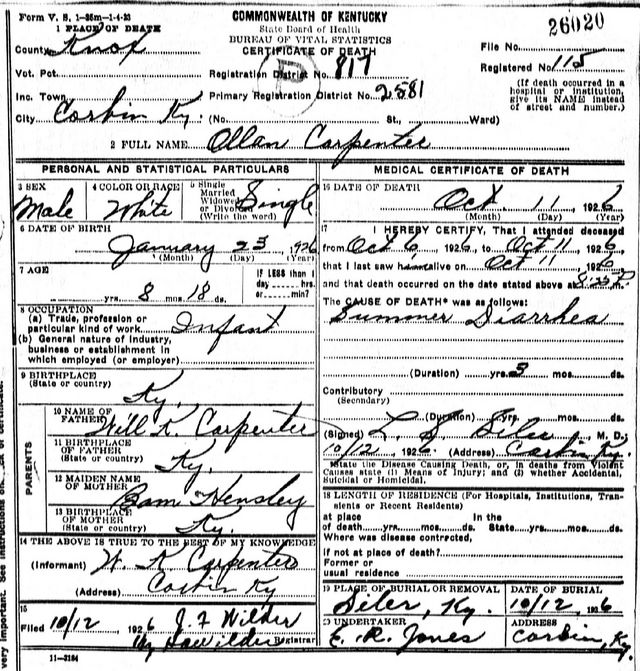 Form V. S. 1-35m-1-4-23
COMMONWEALTH OF KENTUCKY
26020
1 PLACE OF DEATH
State Board of Health
BUREAU OF VITAL STATISTICS
CERTIFICATE OF DEATH
County Knox
File No.
Vot. Pct.
Registration District No. 817
Registered No. 115
Inc. Town
Primary Registration District No. 2581
(If death occurred in a hospital or institution, give its NAME instead of street and number.)
City Corbin Ky. (No. St., Ward)
2 FULL NAME Ollan Carpenter
PERSONAL AND STATISTICAL PARTICULARS
3 SEX
Male
4 COLOR OR RACE
White
5 Single
Married
Widowed
or Divorced
(Write the word)
Single
6 DATE OF BIRTH
January 23, 1926
(Month) (Day) (Year)
7 AGE
yrs. 8 mos. 18 ds.
If LESS than 1
day hrs.
or min?
8 OCCUPATION
(a) Trade, profession or
particular kind of work Infant
(b) General nature of industry,
business or establishment in
which employed (or employer)
9 BIRTHPLACE
(State or country)
Ky.
PARENTS
10 NAME OF
FATHER Will K. Carpenter
11 BIRTHPLACE
OF FATHER
(State or country) Ky.
12 MAIDEN NAME
OF MOTHER Hensley
13 BIRTHPLACE
OF MOTHER
(State or country) Ky.
14 THE ABOVE IS TRUE TO THE BEST OF MY KNOWLEDGE
(Informant) W. K. Carpenter
(Address) Corbin Ky
15
Filed 10/12, 1926 J. F. Wilder
Registrar
11-3184
MEDICAL CERTIFICATE OF DEATH
16 DATE OF DEATH
Oct 11, 1926
(Month) (Day) (Year)
17 I HEREBY CERTIFY, That I attended deceased
from Oct 6, 1926, to Oct 11, 1926,
that I last saw alive on Oct 11, 1926
and that death occurred on the date stated above at
The CAUSE OF DEATH* was as follows:
Summer Diarrhea
(Duration) yrs. mos. ds.
Contributory
(Secondary)
(Duration) yrs. mos. ds.
(Signed) L. S. Siler, M. D.
10/12, 1926. (Address) Corbin Ky.
*State the Disease Causing Death, or, in deaths from Violent
Causes state (1) Means of Injury; and (2) whether Accidental,
Suicidal or Homicidal.
18 LENGTH OF RESIDENCE (For Hospitals, Institutions, Transients or Recent Residents)
at place In the
of death yrs. mos. ds. State yrs. mos. ds.
Where was disease contracted,
if not at place of death?
Former or
usual residence
19 PLACE OF BURIAL OR REMOVAL
Siler, Ky.
DATE OF BURIAL
10/12, 1926
20 UNDERTAKER
E. R. Jones
ADDRESS
Corbin, Ky.